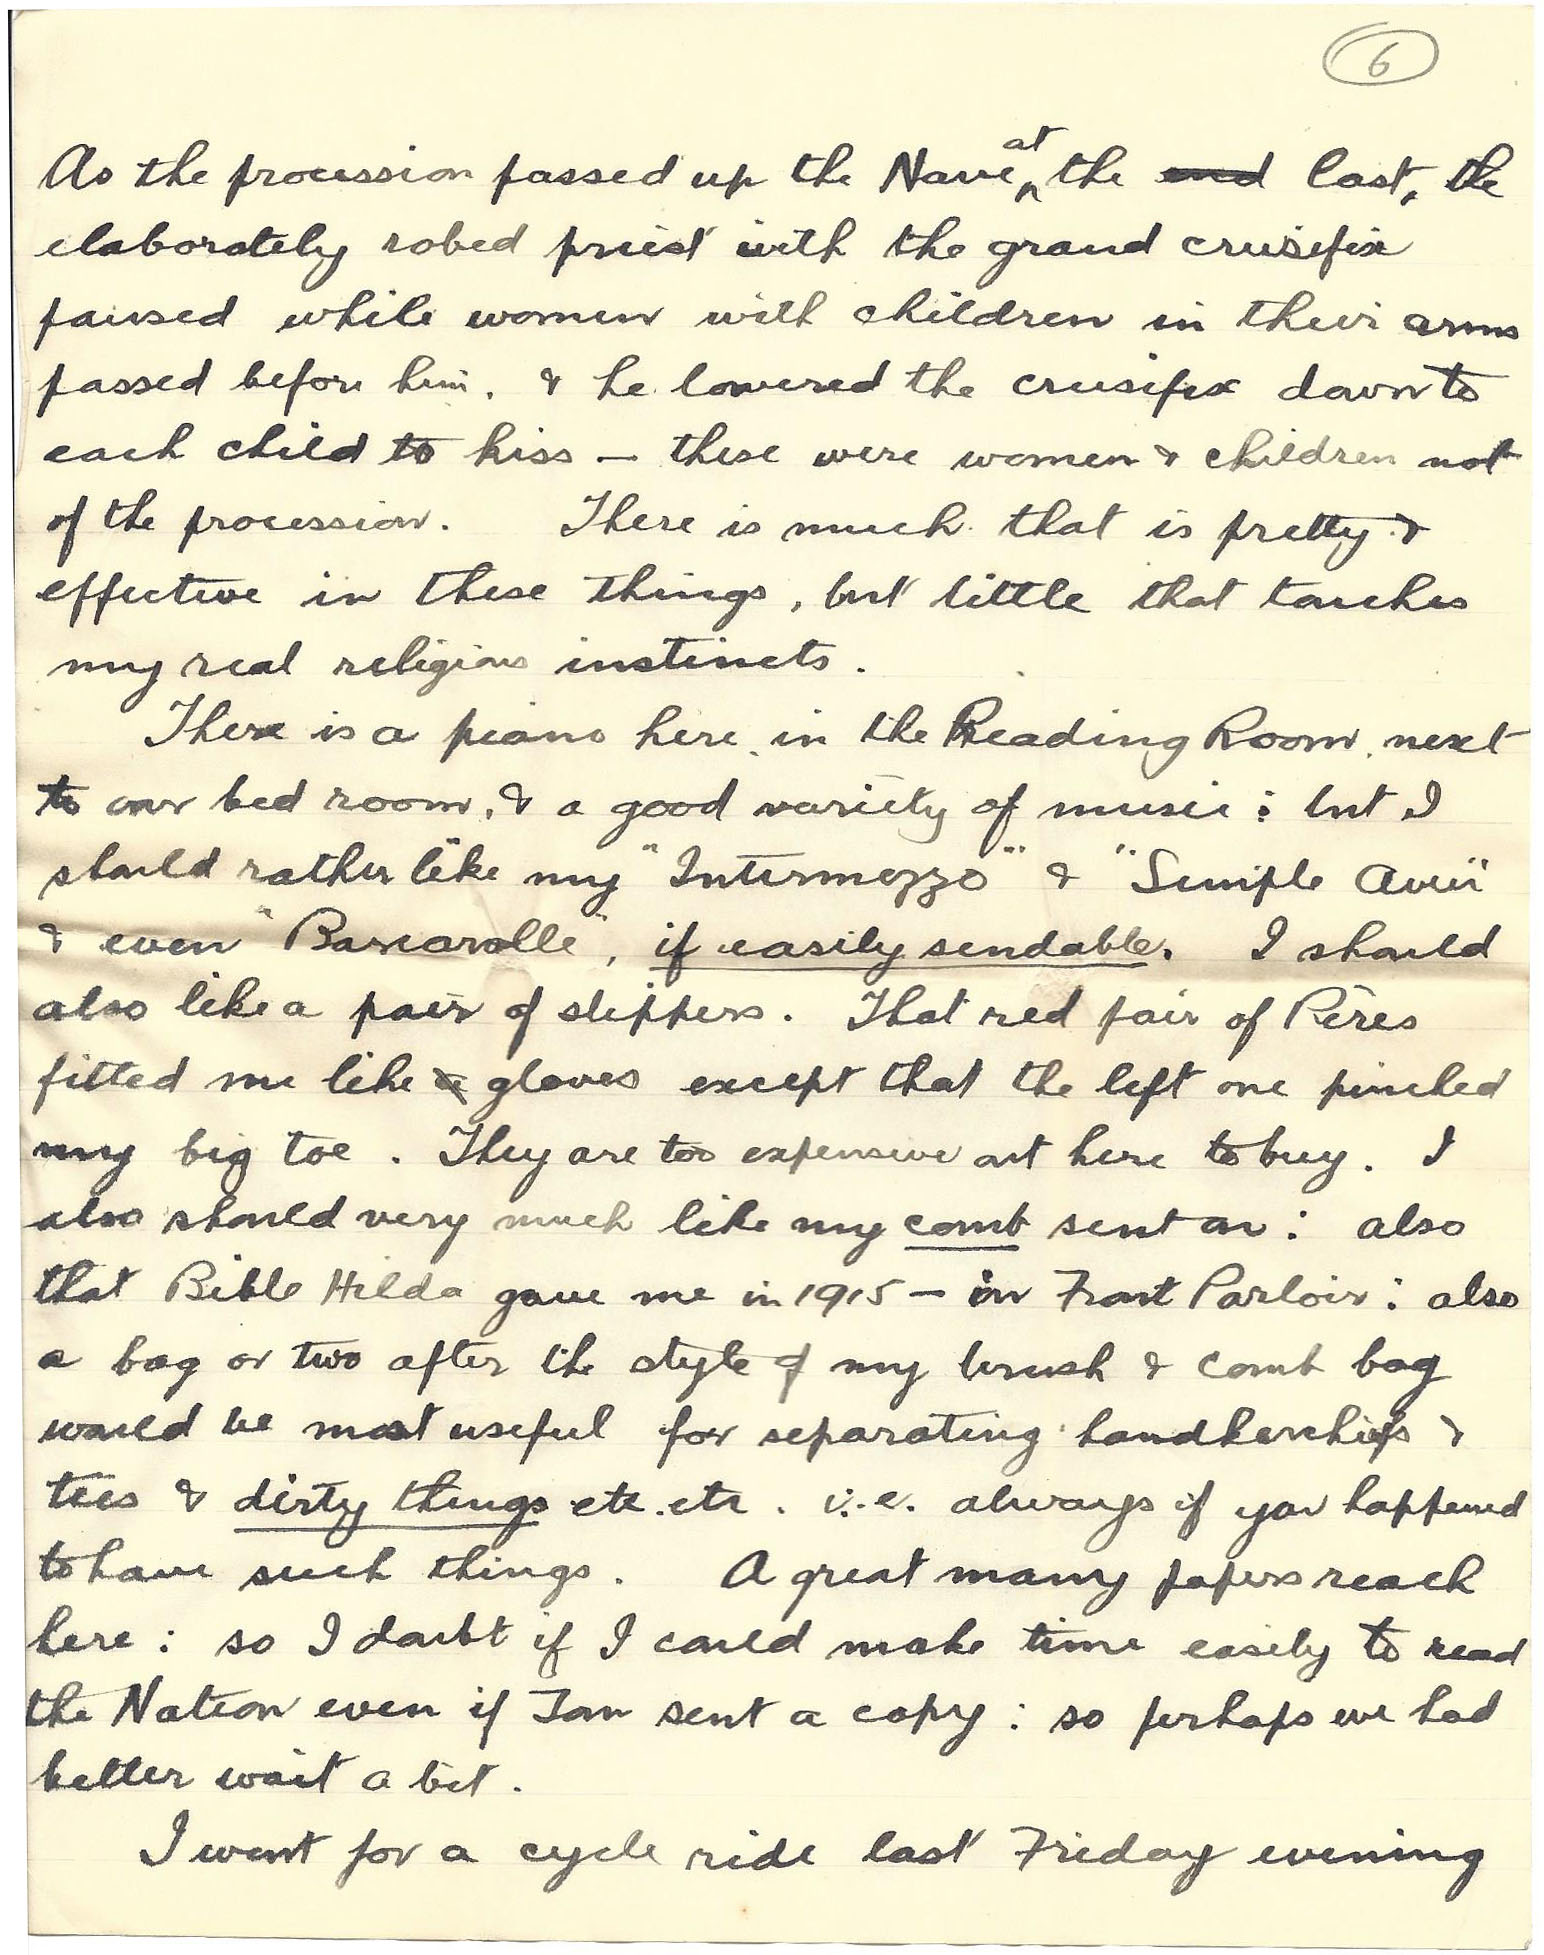 6
As the procession passed up the Nave at the end last, the
elaborately robed priest with the grand crusifix
paused while women with children in their arms
passed before him, & he lowered the crusifix down to
each child to kiss – these were women & children not
of the procession. There is much that is pretty &
effective in these things, but little that touches
my real religious instincts.
There is a piano here, in the Reading Room, next
to our bed room, & a good variety of music: but I
should rather like my "Intermezzo" & "Simple Aveu"
& even "Barcarolle", if easily sendable. I should
also like a pair of slippers. That red pair of Pères
fitted me like a gloves except that the left one pinched
my big toe. They are too expensive out here to buy. I
also should very much like my comb sent on: also
that Bible Hilda gave me in 1915 – in Front Parloir: also
a bag or two after the style of my brush & comb bag
would be most useful for separating handkerchiefs &
ties & dirty things etc. etc. i.e. always if you happened
to have such things. A great many papers reach
here: so I doubt if I could make time easily to read
the Nation even if Tom sent a copy: so perhaps we had
better wait a bit.
I went for a cycle ride last Friday evening